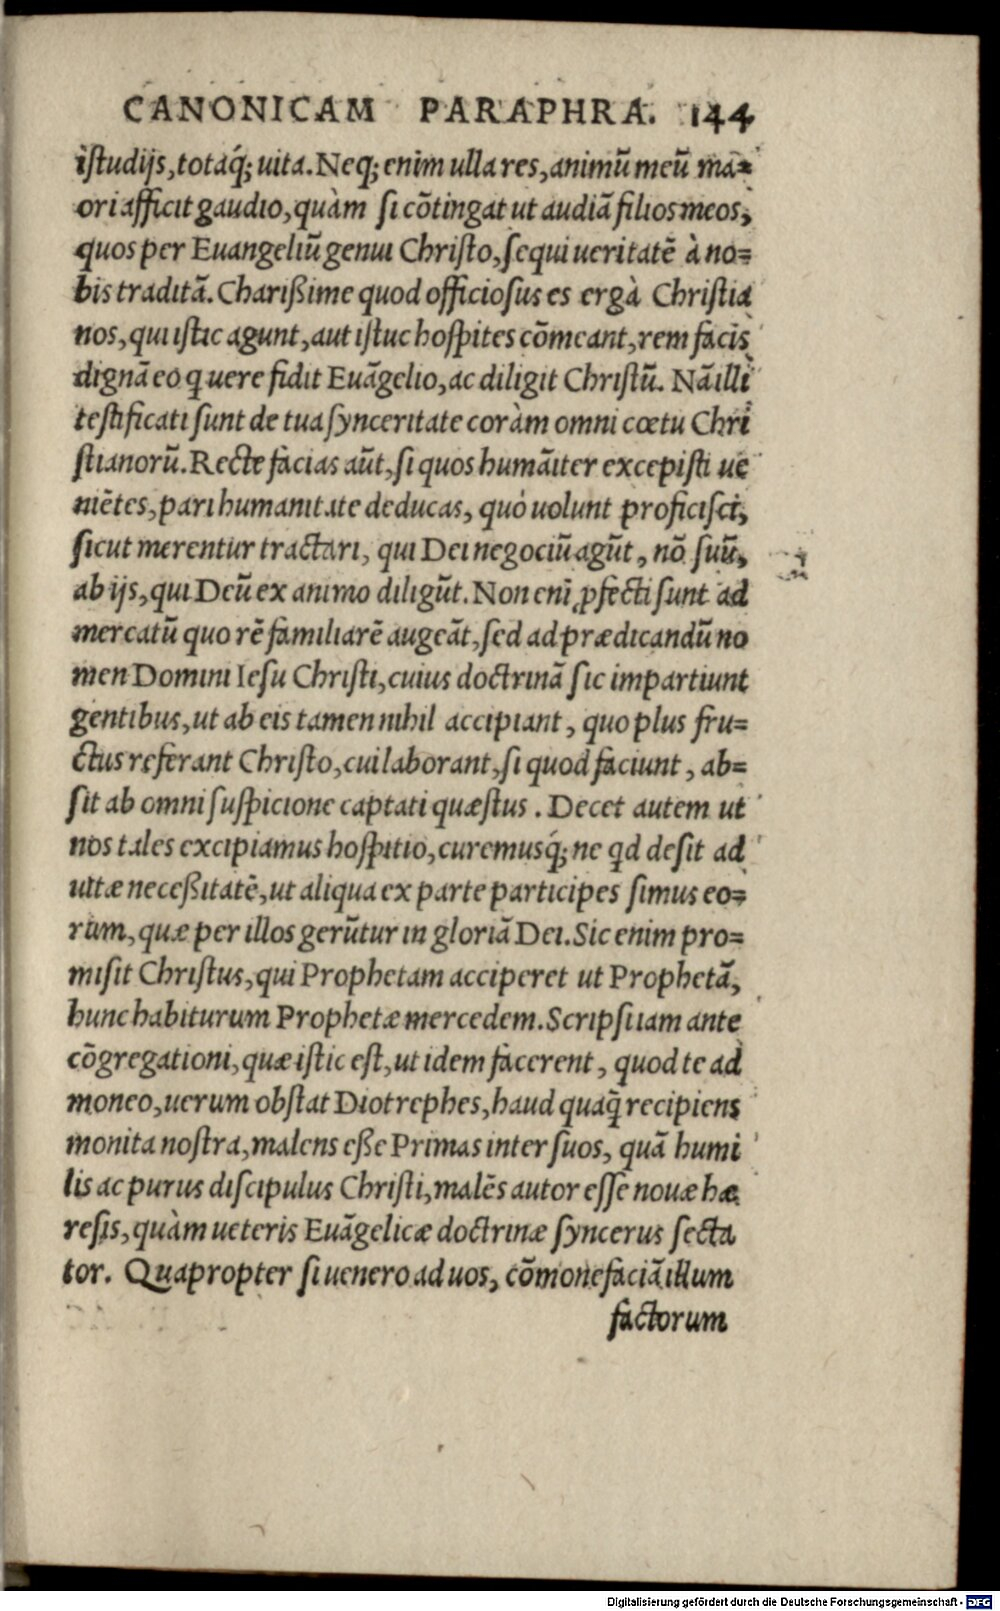 CANONICAM PARAPHRA. 144
istudijs, totaq́; uita. Neq; enim ulla res, animũ meũ ma=
ori afficit gaudio, quàm si cõtingat ut audiã filios meos,
quos per Euangeliũ genui Christo, sequi ueritatẽ à no=
bis traditã. Charißime quod officiosus es ergà Christia
nos, qui istic agunt, aut istuc hospites cõmeant, rem facis
dignã eo q uere fidit Euãgelio, ac diligit Christũ. Nã illi
testificati sunt de tua synceritate coràm omni cœtu Chri
stianorũ. Recte facias aũt, si quos humãiter excepisti ue
niẽtes, pari humanitate deducas, quò uolunt proficisci,
sicut merentur tractari, qui Dei negociũ agũt, nõ suũ,
ab ijs, qui Deũ ex animo diligũt. Non enĩ ꝓfecti sunt ad
mercatũ quo rẽ familiarẽ augeãt, sed ad prædicandũ no
men Domini Iesu Christi, cuius doctrinã sic impartiunt
gentibus, ut ab eis tamen nihil accipiant, quo plus fru=
ctus referant Christo, cui laborant, si quod faciunt, ab=
sit ab omni suspicione captati quæstus. Decet autem ut
nos tales excipiamus hospitio, curemusq́; ne qd desit ad
uitæ neceßitatẽ, ut aliqua ex parte participes simus eo=
rum, quæ per illos gerũtur in gloriã Dei. Sic enim pro=
misit Christus, qui Prophetam acciperet ut Prophetã,
hunc habiturum Prophetæ mercedem. Scripsi iam ante
cõgregationi, quæ istic est, ut idem facerent, quod te ad
moneo, uerum obstat Diotrephes, haud quaq̃ recipiens
monita nostra, malens eße Primas inter suos, quã humi
lis ac purus discipulus Christi, malẽs autor esse nouæ hæ
resis, quàm ueteris Euãgelicæ doctrinæ syncerus secta
tor. Quapropter si uenero ad uos, cõmonefaciã illum
factorum
Digitalisierung gefördert durch die Deutsche Forschungsgemeinschaft - DFG